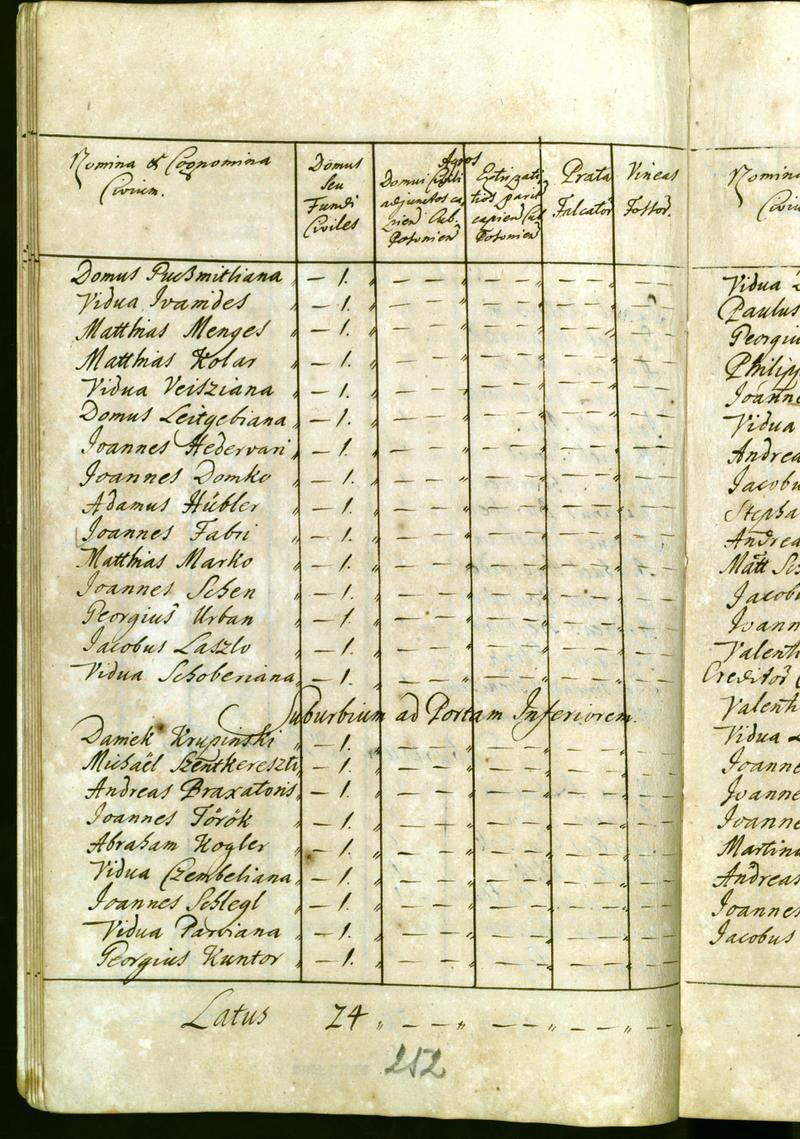 Nomina & Cognomina Civium.
Domus seu Fundi Civiles
Agros
Domui Civili adjunctos
Extirpati
capien
Posonien
Prata Falcator
Vineas Fossor.
Domus Pußmithiana „ — 1. „ — — „ — — „ — — „ — —
Vidua Ivamdes „ — 1. „ — — „ — — „ — — „ — —
Matthias Menges „ — 1. „ — — „ — — „ — — „ — —
Matthias Kolar „ — 1. „ — — „ — — „ — — „ — —
Vidua Veisziana „ — 1. „ — — „ — — „ — — „ — —
Domus Leitgebiana „ — 1. „ — — „ — — „ — — „ — —
Joannes Hedervari „ — 1. „ — — „ — — „ — — „ — —
Joannes Domko „ — 1. „ — — „ — — „ — — „ — —
Adamus Hübler „ — 1. „ — — „ — — „ — — „ — —
Joannes Fabri „ — 1. „ — — „ — — „ — — „ — —
Matthias Marko „ — 1. „ — — „ — — „ — — „ — —
Joannes Schen „ — 1. „ — — „ — — „ — — „ — —
Georgius Urban „ — 1. „ — — „ — — „ — — „ — —
Jacobus Laszlo „ — 1. „ — — „ — — „ — — „ — —
Vidua Schoberiana „ — 1. „ — — „ — — „ — — „ — —
Suburbium ad Portam Inferiorem.
Damek Krupinski „ — 1. „ — — „ — — „ — — „ — —
Michaël Szentkereszti „ — 1. „ — — „ — — „ — — „ — —
Andreas Braxatoris „ — 1. „ — — „ — — „ — — „ — —
Joannes Török „ — 1. „ — — „ — — „ — — „ — —
Abraham Kogler „ — 1. „ — — „ — — „ — — „ — —
Vidua Czembeliana „ — 1. „ — — „ — — „ — — „ — —
Joannes Schlegl „ — 1. „ — — „ — — „ — — „ — —
Vidua Parviana „ — 1. „ — — „ — — „ — — „ — —
Georgius Kuntor „ — 1. „ — — „ — — „ — — „ — —
Latus 24 „ — — „ — — „ — — „ — —
252
Nomina
Vidua
Paulus
Georgiu
Philipp
Joanne
Vidua
Andrea
Jacobu
Stepha
Andrea
Matt Sc
Jacobu
Joann
Valenti
Creditor
Valenti
Vidua
Joanne
Joanne
Joanne
Martinu
Andreas
Joannes
Jacobus